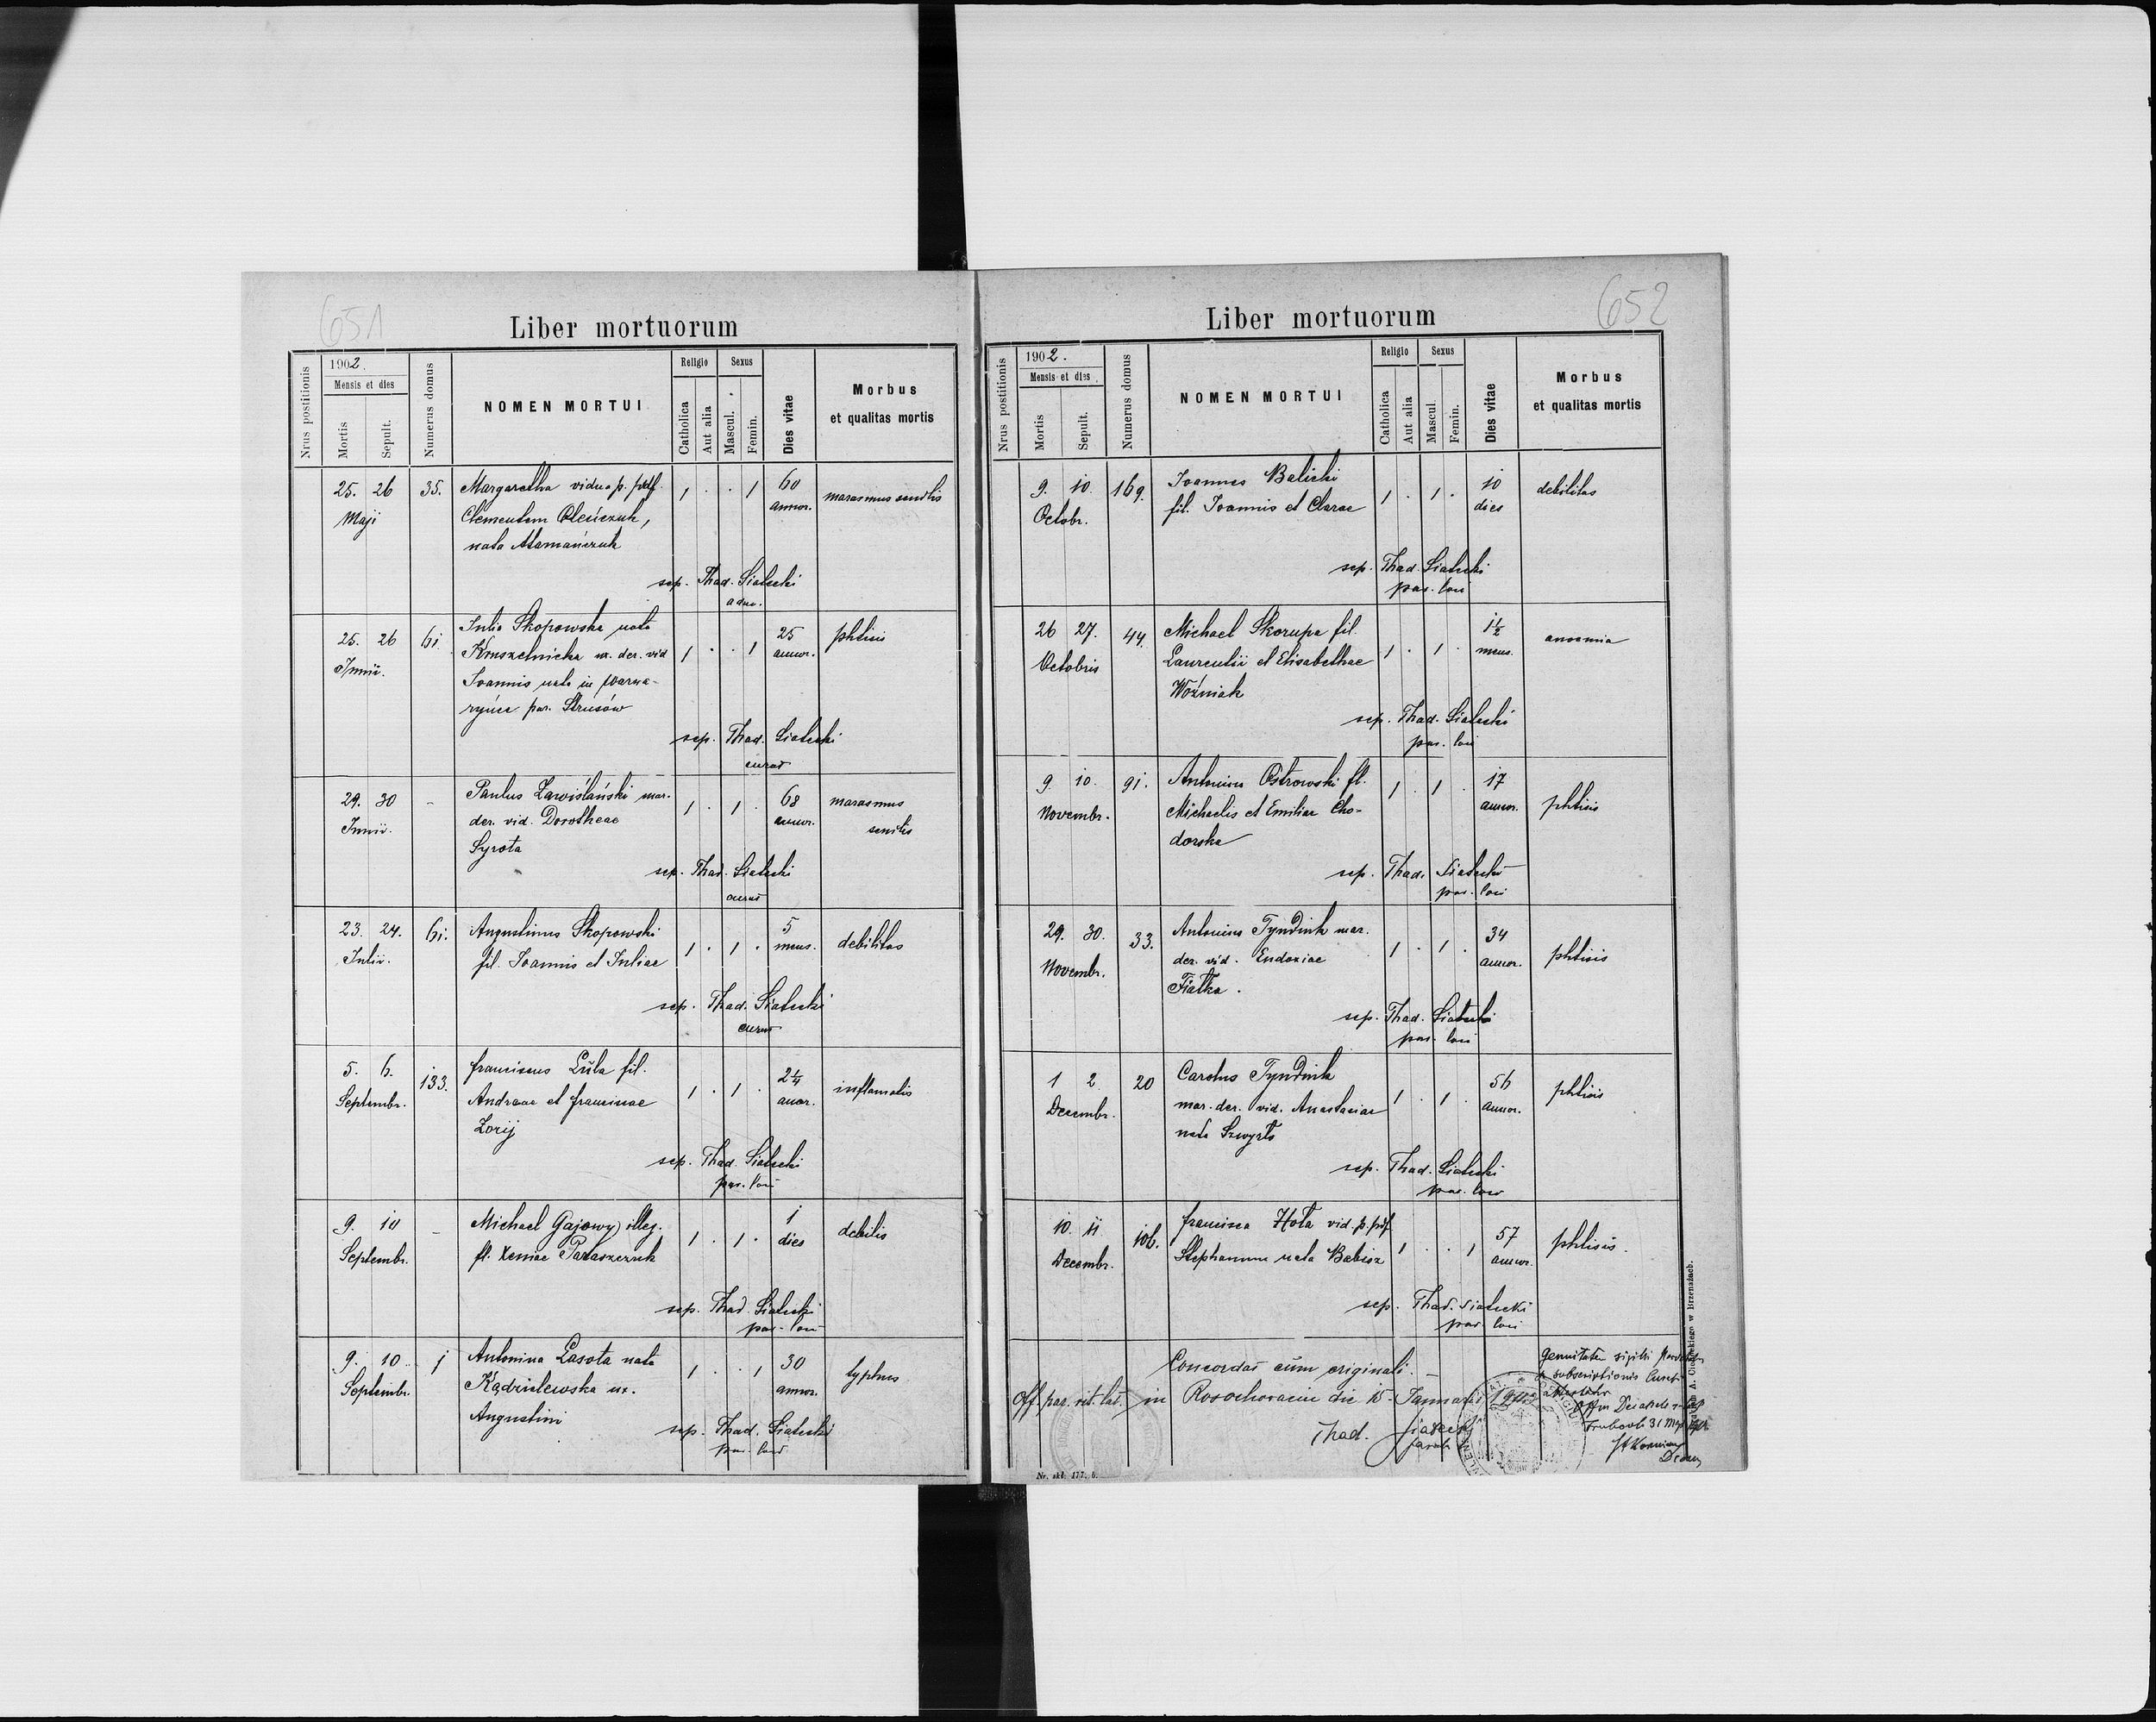 651
Liber mortuorum
Nrus postitionis
1902.
Mensis et dies
Mortis
Sepult.
Numerus domus
NOMEN MORTUI
Religio
Catholica
Aut alia
Sexus
Mascul.
Femin.
Dies vitae
Morbus
et qualitas mortis
25. 26 35. Margaretha vidua p. 1 . . 1 60 marasmus senilis
Maji Clementem Oleńczuk, annor.
nata Atamańczuk
sep. Thad. Siatecki
adm.
25. 26 61. Julia Skopowska nata 1 . . 1 25 phtisis
Junii. Kruszelnicka ux. der. vid annor.
Joannis nata in Warwa-
ryńce par. Strusów
sep. Thad. Siatecki
curat
29. 30 - Paulus Zawiślański mar. 1 . 1 . 68 marasmus
Junii. der. vid. Dorotheae annor. senilis
Syrota
sep. Thad. Siatecki
23. 24. 61. Augustinus Skopowski 1 . 1 . 5 debilitas
Julii. fil. Joannis et Juliae mens.
sep. Thad. Siatecki
5. 6. 133. Franciscus Lula fil. 1 . 1 . 2¼ inflamatis
Septembr. Andreae et Franciscae annor.
Zorij
sep. Thad. Siatecki
par. loci
9. 10 - Michael Gajowy illeg. 1 . 1 . 1 debilis
Septembr. fl. Xeniae Paraszczuk dies
sep. Thad. Siatecki
par. loci
9. 10 1 Antonina Lasota nata 1 . . 1 30 typhus
Septembr. Kądzielewska ux. annor.
Augustini
sep. Thad. Siatecki
par. loci
652
Liber mortuorum
Nrus postitionis
1902.
Mensis et dies
Mortis
Sepult.
Numerus domus
NOMEN MORTUI
Religio
Catholica
Aut alia
Sexus
Mascul.
Femin.
Dies vitae
Morbus
et qualitas mortis
9. 10. 169. Joannes Balicki 1 . 1 . 10 debilitas
Octobr. fil. Joannis et Clarae dies
sep. Thad. Siatecki
par. loci
26 27. 44. Michael Skorupa fil. 1 . 1 . 1½ anaemia
Octobris Laurentii et Elisabethae mens.
Woźniak
sep. Thad. Siatecki
par. loci
9. 10. 91. Antonius Ostrowski fl. 1 . 1 . 17 phtisis
Novembr. Michaelis et Emiliae Cho- annor.
dorska
sep. Thad. Siatecki
par. loci
29. 30. 33. Antonius Tyndiuk mar. 1 . 1 . 34 phtisis
Novembr. der. vid. Eudoxiae annor.
Fiałka.
sep. Thad. Siatecki
par. loci
1 2 20 Carolus Tyndiuk 1 . 1 . 56 phtisis
Decembr. mar. der. vid. Anastasiae annor.
nata
sep. Thad. Siatecki
par. loci
10. 11 106. Francisca Hota vid. p. 1 . . 1 57 phtisis.
Decembr. Stephanum nata Babisz annor.
sep. Thad. Siatecki
par. loci
Concordat cum originali.
Off. par. rit. lat. in Rosochowaciec die 15 Januarii
Thad. Siatecki
Nr. skł. 177. b.